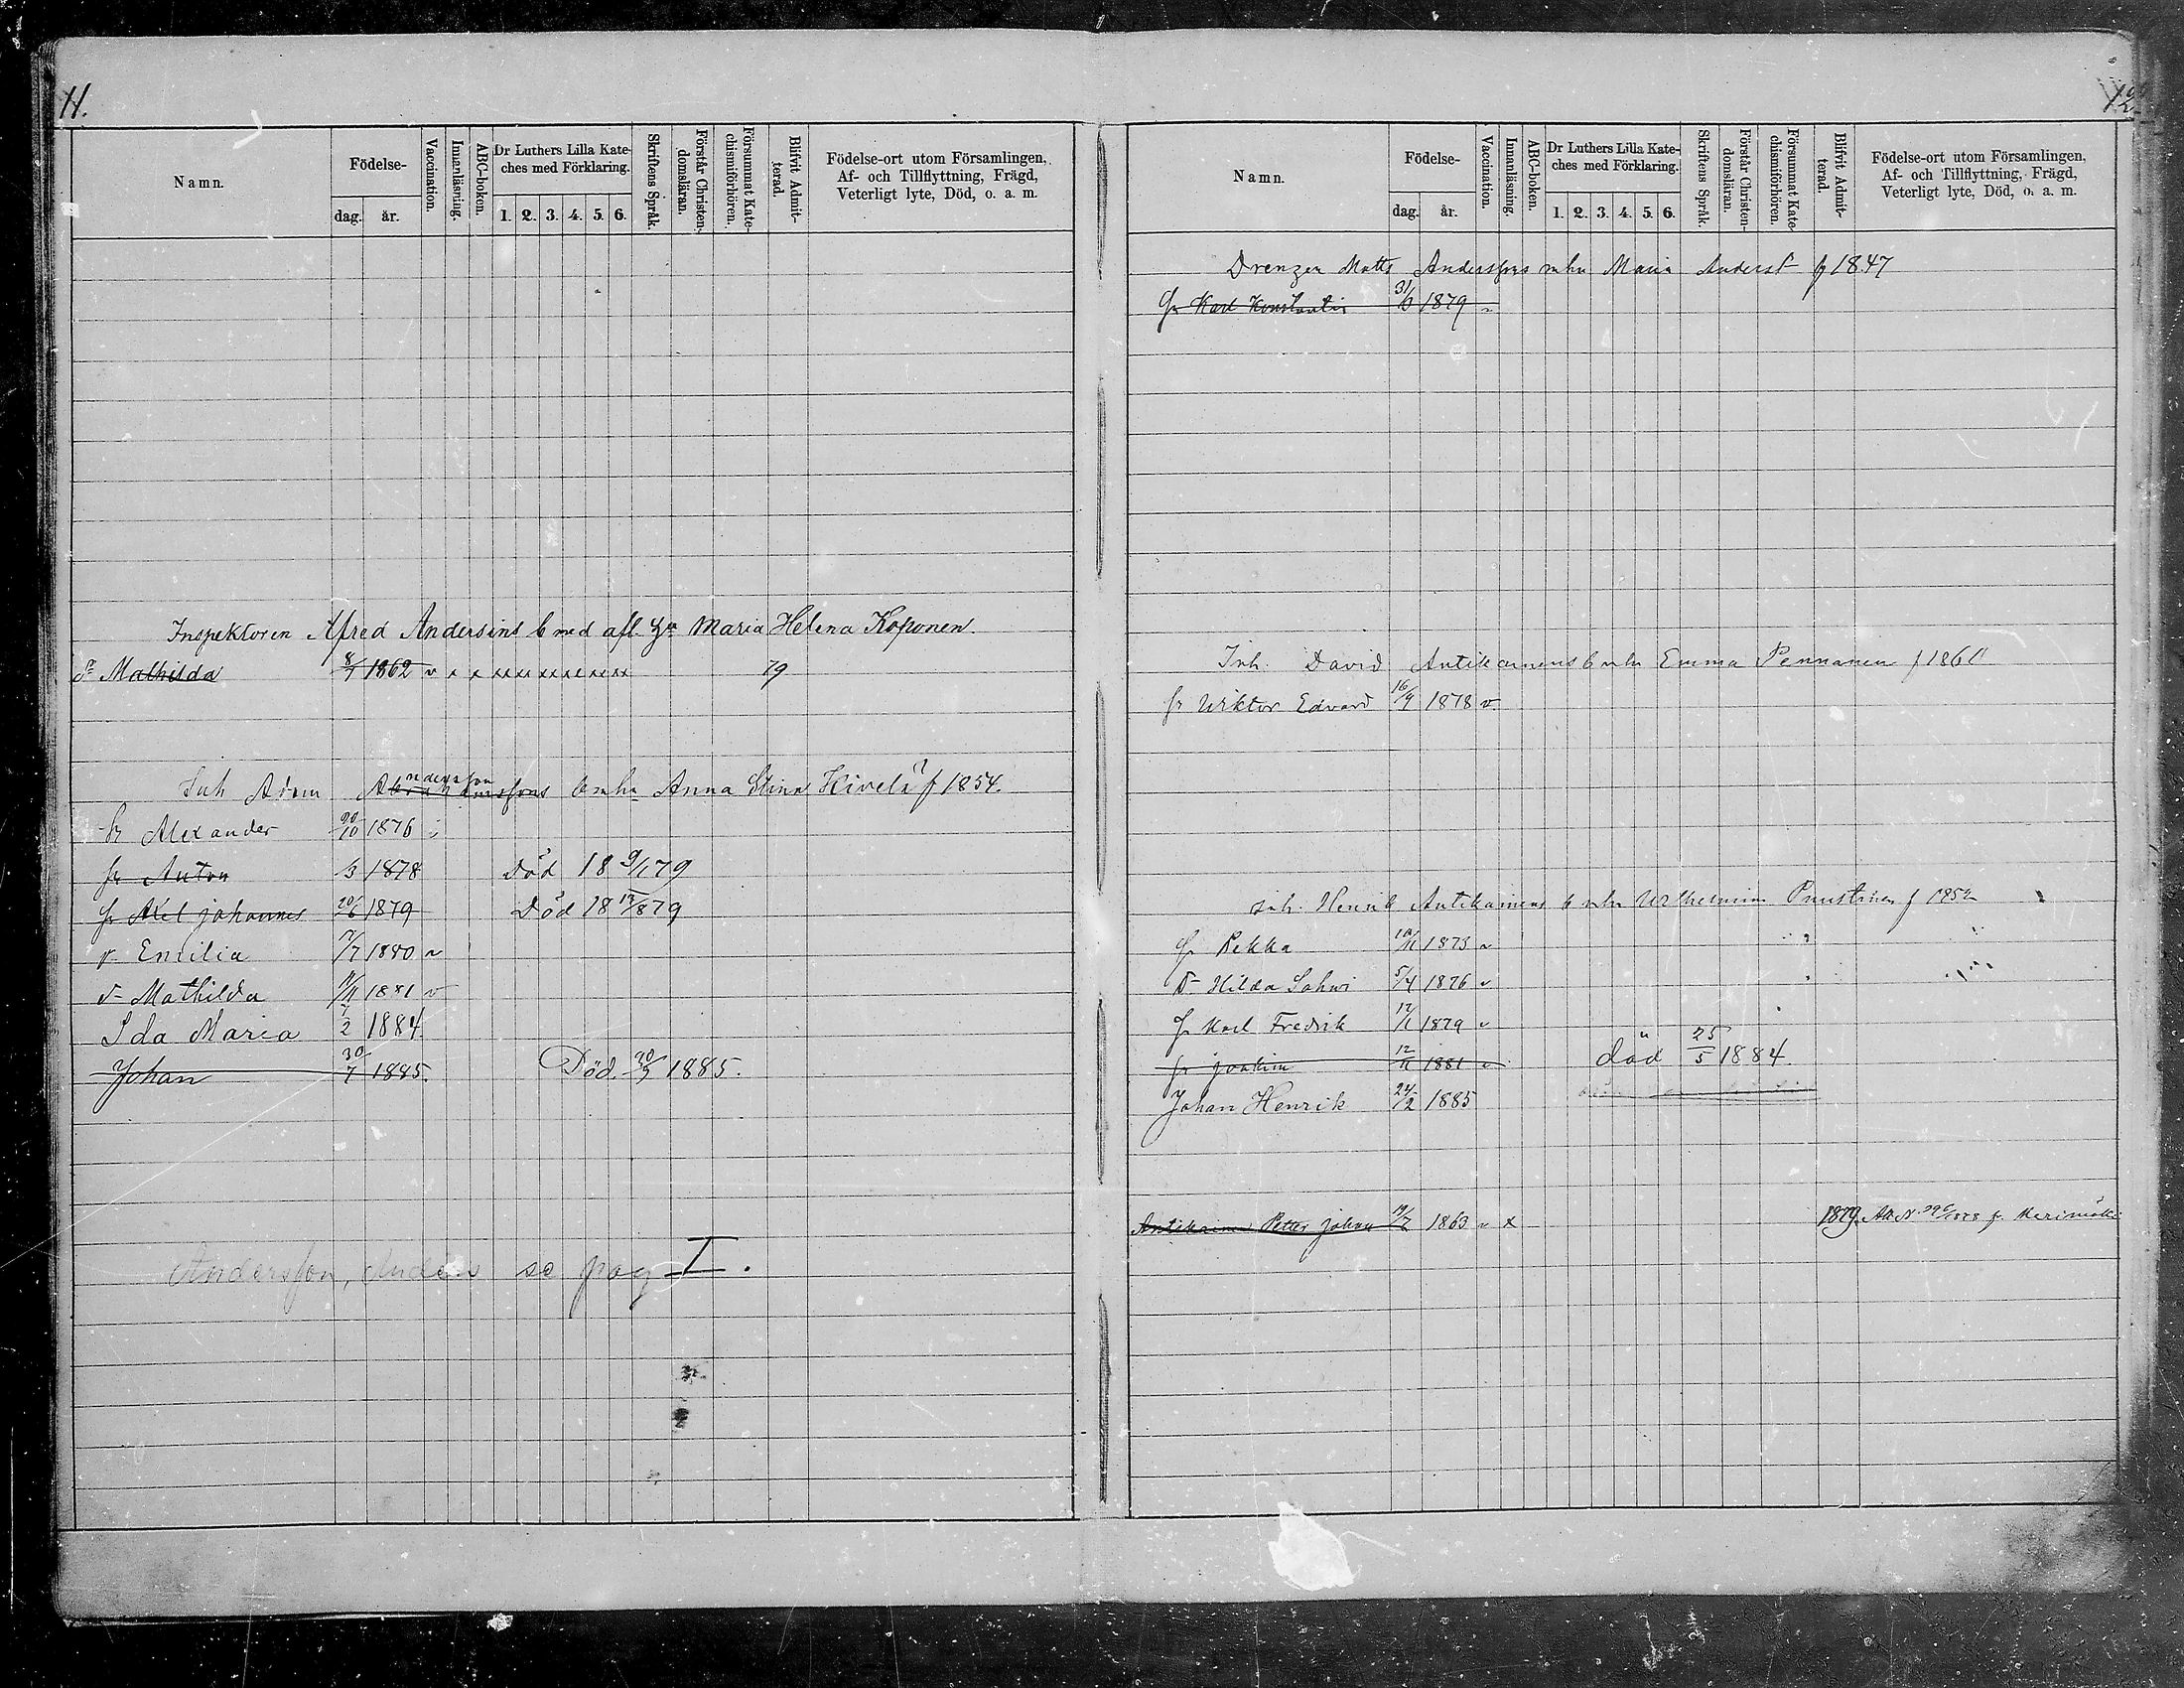 11.
Namn.
Födelse-
dag. år.
Vaccination.
Innanläsning.
ABC-boken.
Dr Luthers Lilla Kate-
ches med Förklaring.
1. 2. 3. 4. 5. 6.
Skriftens Språk.
Förstår Christen-
domsläran.
Försummat Kate-
chismiförhören.
Blifvit Admit-
terad.
Födelse-ort utom Församlingen,
Af- och Tillflyttning, Frägd,
Veterligt lyte, Död, o. a. m.
Inspektoren Alfred Andersins b med afl. Maria Helena Koponen.
Mathilda 8/7 1862 v x x xx xx xx x xx xx 79
Inh Andersson Abrahamssons b mhu Anna Stina Hivelä f 1854.
Alexander 1876
Anton 1878 Död 18 9/1 79
Axel johannes 20/6 1879 Död 18 79
Emilia 1880 v
Mathilda 1881 v
Ida Maria 7/2 1884.
Johan 30/7 1885. Död 1885.
Andersson, Anders se pag I.
Namn.
Födelse-
dag. år.
Vaccination.
Innanläsning.
ABC-boken.
Dr Luthers Lilla Kate-
ches med Förklaring.
1. 2. 3. 4. 5. 6.
Skriftens Språk.
Förstår Christen-
domsläran.
Försummat Kate-
chismiförhören.
Blifvit Admit-
terad.
Födelse-ort utom Församlingen,
Af- och Tillflyttning, Frägd,
Veterligt lyte, Död, o. a. m.
Drengen Matts Anderssons mhu Maria Anders f 1847
Karl Konstantin 1879
Inh. David Antikainens b mhu Emma Pennanen f 1860
Wiktor Edvard 16/9 1878 v
Inh. Henrik Antikainens b mhu Wilhelmina Puustinen f 1852
Pekka 1873 v
Hilda Sohvi 5/4 1876 v
Karl Fredrik 17/1 1879 v
joakim 12/11 1881 v död 25/5 1884.
Johan Henrik 24/2 1885
Antikainen Petter johan 19/7 1863 v x 1879. Att N.